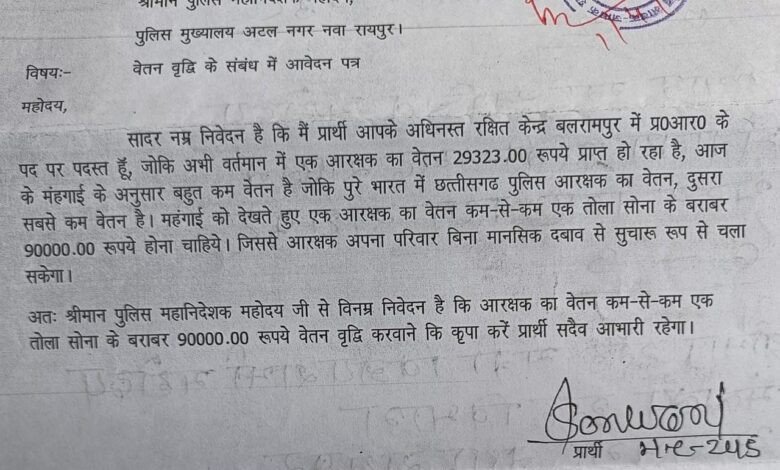 श्रीमान पुलिस महानिदेशक महोदय,
पुलिस मुख्यालय अटल नगर नवा रायपुर।
विषयः- वेतन वृद्धि के संबंध में आवेदन पत्र
महोदय,
सादर नम्र निवेदन है कि मैं प्रार्थी आपके अधिनस्त रक्षित केन्द्र बलरामपुर में प्र0आर0 के
पद पर पदस्त हूँ, जोकि अभी वर्तमान में एक आरक्षक का वेतन 29323.00 रूपये प्राप्त हो रहा है, आज
के मंहगाई के अनुसार बहुत कम वेतन है जोकि पुरे भारत में छत्तीसगढ पुलिस आरक्षक का वेतन, दुसरा
सबसे कम वेतन है। महंगाई को देखते हुए एक आरक्षक का वेतन कम-से-कम एक तोला सोना के बराबर
90000.00 रूपये होना चाहिये। जिससे आरक्षक अपना परिवार बिना मानसिक दबाव से सुचारू रूप से चला
सकेगा।
अतः श्रीमान पुलिस महानिदेशक महोदय जी से विनम्र निवेदन है कि आरक्षक का वेतन कम-से-कम एक
तोला सोना के बराबर 90000.00 रूपये वेतन वृद्धि करवाने कि कृपा करें प्रार्थी सदैव आभारी रहेगा।
प्रार्थी